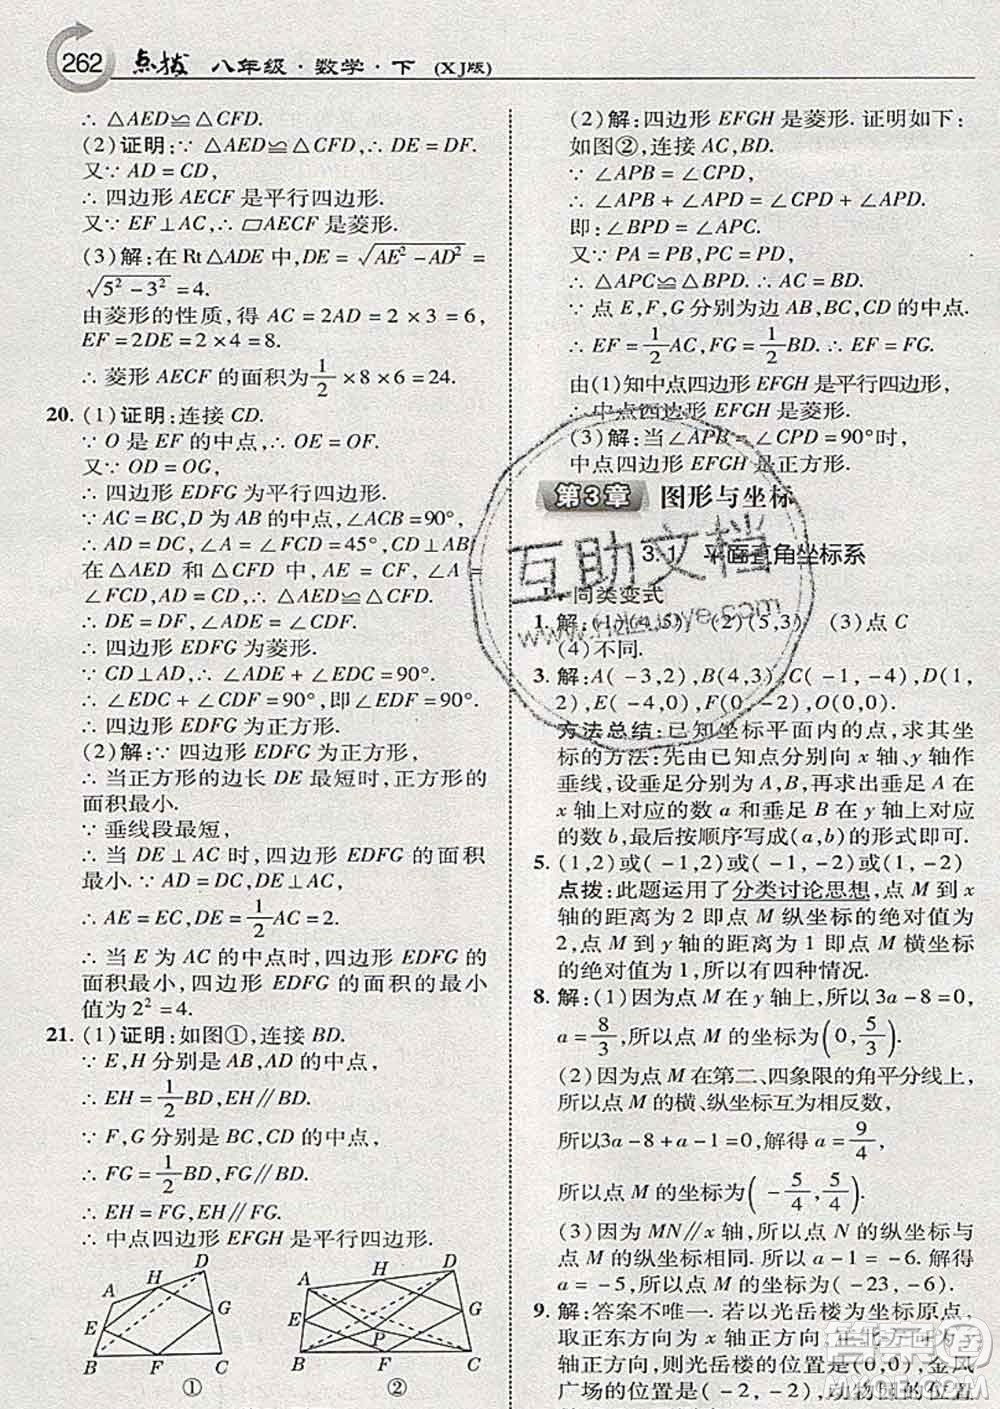 262 点拨 八年级·数学·下 (XJ版)
∴ △AED≌△CFD.
(2)证明:∵ △AED≌△CFD,∴ DE = DF.
又∵ AD = CD,
∴ 四边形 AECF 是平行四边形.
又∵ EF⊥AC,∴ ▱AECF 是菱形.
(3)解:在 Rt△ADE 中,DE = √(AE² - AD²) =
√(5² - 3²) = 4.
由菱形的性质,得 AC = 2AD = 2 × 3 = 6,
EF = 2DE = 2 × 4 = 8.
∴ 菱形 AECF 的面积为 1/2 × 8 × 6 = 24.
20. (1)证明:连接 CD.
∵ O 是 EF 的中点,∴ OE = OF.
又∵ OD = OG,
∴ 四边形 EDFG 为平行四边形.
∵ AC = BC,D 为 AB 的中点,∠ACB = 90°,
∴ AD = CD,∠A = ∠FCD = 45°,CD⊥AB.
在△ADE 和△CDF 中,
∵ AE = CF,∠A = ∠FCD,AD = CD,
∴ △ADE≌△CDF.
∴ DE = DF,∠ADE = ∠CDF.
∴ 四边形 EDFG 为菱形.
∵ CD⊥AD,∴ ∠ADE + ∠EDC = 90°.
∴ ∠EDC + ∠CDF = 90°,即∠EDF = 90°.
∴ 四边形 EDFG 为正方形.
(2)解:∵ 四边形 EDFG 为正方形,
∴ 当正方形的边长 DE 最短时,正方形的
面积最小.
∵ 垂线段最短,
∴ 当 DE⊥AC 时,四边形 EDFG 的面积
最小.∵ AD = DC,DE⊥AC,
∴ AE = EC,DE = 1/2 AC = 2.
∴ 当 E 为 AC 的中点时,四边形 EDFG
的面积最小,四边形 EDFG 的面积的最小
值为 2² = 4.
21. (1)证明:如图①,连接 BD.
∵ E,H 分别是 AB,AD 的中点,
∴ EH = 1/2 BD,EH∥BD.
∵ F,G 分别是 BC,CD 的中点,
∴ FG = 1/2 BD,FG∥BD.
∴ EH = FG,EH∥FG.
∴ 中点四边形 EFGH 是平行四边形.
A H D E G B F C
①
A H D E G B P F C
②
(2)解:四边形 EFGH 是菱形. 证明如下:
如图②,连接 AC,BD.
∵ ∠APB = ∠CPD,
∴ ∠APB + ∠APD = ∠CPD + ∠APD.
即:∠BPD = ∠APC.
又∵ PA = PB,PC = PD,
∴ △APC≌△BPD.∴ AC = BD.
∵ 点 E,F,G 分别为边 AB,BC,CD 的中点.
∴ EF = 1/2 AC,FG = 1/2 BD.∴ EF = FG.
由(1)知中点四边形 EFGH 是平行四边形,
∴ 中点四边形 EFGH 是菱形.
(3)解:当∠APB = ∠CPD = 90°时,
中点四边形 EFGH 是正方形.
第3章 图形与坐标
3.1 平面直角坐标系
同类变式
1. 解:(1)(4,5) (2)(5,3) (3)点 C
(4)不同.
3. 解:A( - 3,2),B(4,3),C( - 4, - 3),D(2,
- 2),E( - 4,0),F(0, - 2),O(0,0).
方法总结:已知坐标平面内的点,求其坐
标的方法:先由已知点分别向 x 轴、y 轴作
垂线,设垂足分别为 A,B,再求出垂足 A 在
x 轴上对应的数 a 和垂足 B 在 y 轴上对应
的数 b,最后按顺序写成(a,b)的形式即可.
5. (1,2)或( - 1,2)或( - 1, - 2)或(1, - 2)
点拨:此题运用了分类讨论思想,点 M 到 x
轴的距离为 2 即点 M 纵坐标的绝对值为
2,点 M 到 y 轴的距离为 1 即点 M 横坐标
的绝对值为 1,所以有四种情况.
8. 解:(1)因为点 M 在 y 轴上,所以 3a - 8 = 0,
a = 8/3,所以点 M 的坐标为(0, 5/3).
(2)因为点 M 在第二、四象限的角平分线上,
所以点 M 的横、纵坐标互为相反数,
所以3a - 8 + a - 1 = 0,解得 a = 9/4,
所以点 M 的坐标为( - 5/4, 5/4).
(3)因为 MN∥x 轴,所以点 N 的纵坐标与
点 M 的纵坐标相同. 所以 a - 1 = - 6. 解得
a = - 5,所以点 M 的坐标为( - 23, - 6).
9. 解:答案不唯一. 若以光岳楼为坐标原点,
取正东方向为 x 轴正方向,正北方向为 y
轴正方向,则光岳楼的位置是(0,0),金凤
广场的位置是( - 2, - 2),动物园的位置
互助文档
www.hzwoye.com
作业精灵